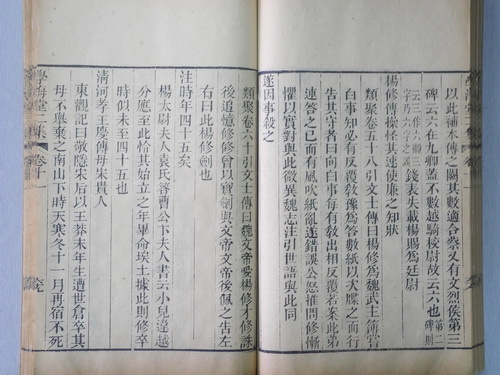 以此補本傳之闕其數適合蔡又有文烈侯第三
碑云六在九卿蓋不數越騎校尉故云六也第二碑則
錢表失載楊賜爲廷尉
楊修傳操怪其速使廉之知狀
類聚卷五十八引文士傳曰楊修爲魏武主簿嘗
白事知必有反覆敎豫爲答數紙以次牒之而行
告其守者曰向白事每有敎出相反覆若案此弟
連答之已而有風吹紙亂遂錯誤公怒推問修慚
懼以實對與此微異魏志注引世語與此同
遂因事殺之
類聚卷六十引文士傳曰魏文帝愛楊修才修誅
後追憶修修曾以寶劍與文帝文帝後佩之告左
右曰此楊修劍也
注時年四十五矣
楊太尉夫人袁氏答曹公卞夫人書云小兒違越
分應至此恰其始立之年畢命埃土據此則修卒
時似未至四十五也
淸河孝王慶傳母宋貴人
東觀記曰敬隱宋后以王莽末年生遭世倉卒其
母不與棄之南山下時天寒冬十一月再宿不死
學海堂二集 卷十